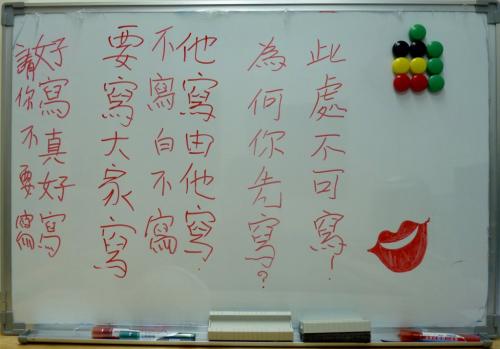 此處不可寫!
為何你先寫?
他寫由他寫,
不寫白不寫
要寫大家寫
好寫真好寫
請你不要寫